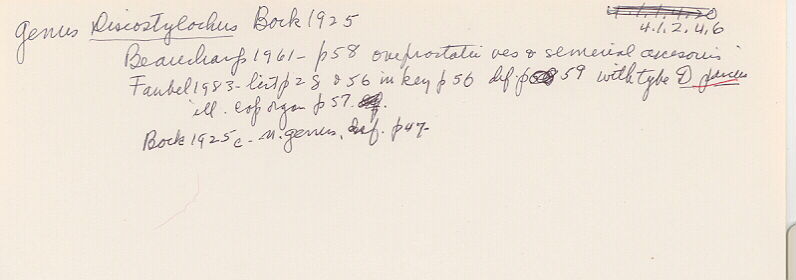 4.1.1.4.20
4.1.2.4.6
Genus Discostylochus Bock 1925
Beauchamp 1961 - p58 one prostatic ves & seminal accessories
Faubel 1983 - list p28 & 56 in key p56 def. p 59 with type D parcus
ill. cop organ p57.
Bock 1925c - n. genus, def. p47-